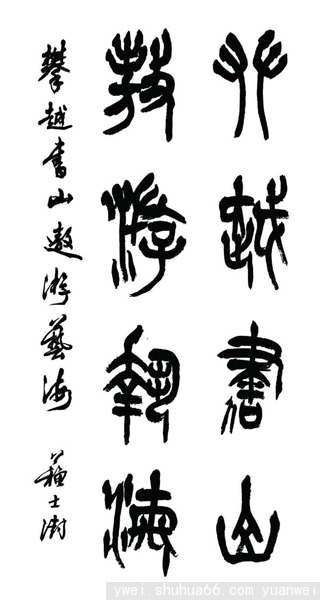 𠬜越書山
敖游埶海
攀越書山遨游藝海
蘇士澍
ywei.shuhua66.com yuanwei